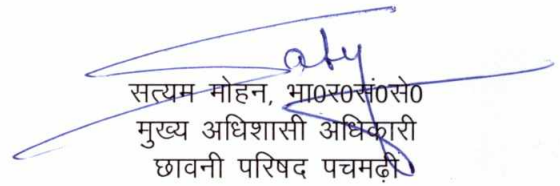 सत्यम मोहन, भा0र0सं0से0
मुख्य अधिशासी अधिकारी
छावनी परिषद पचमढ़ी